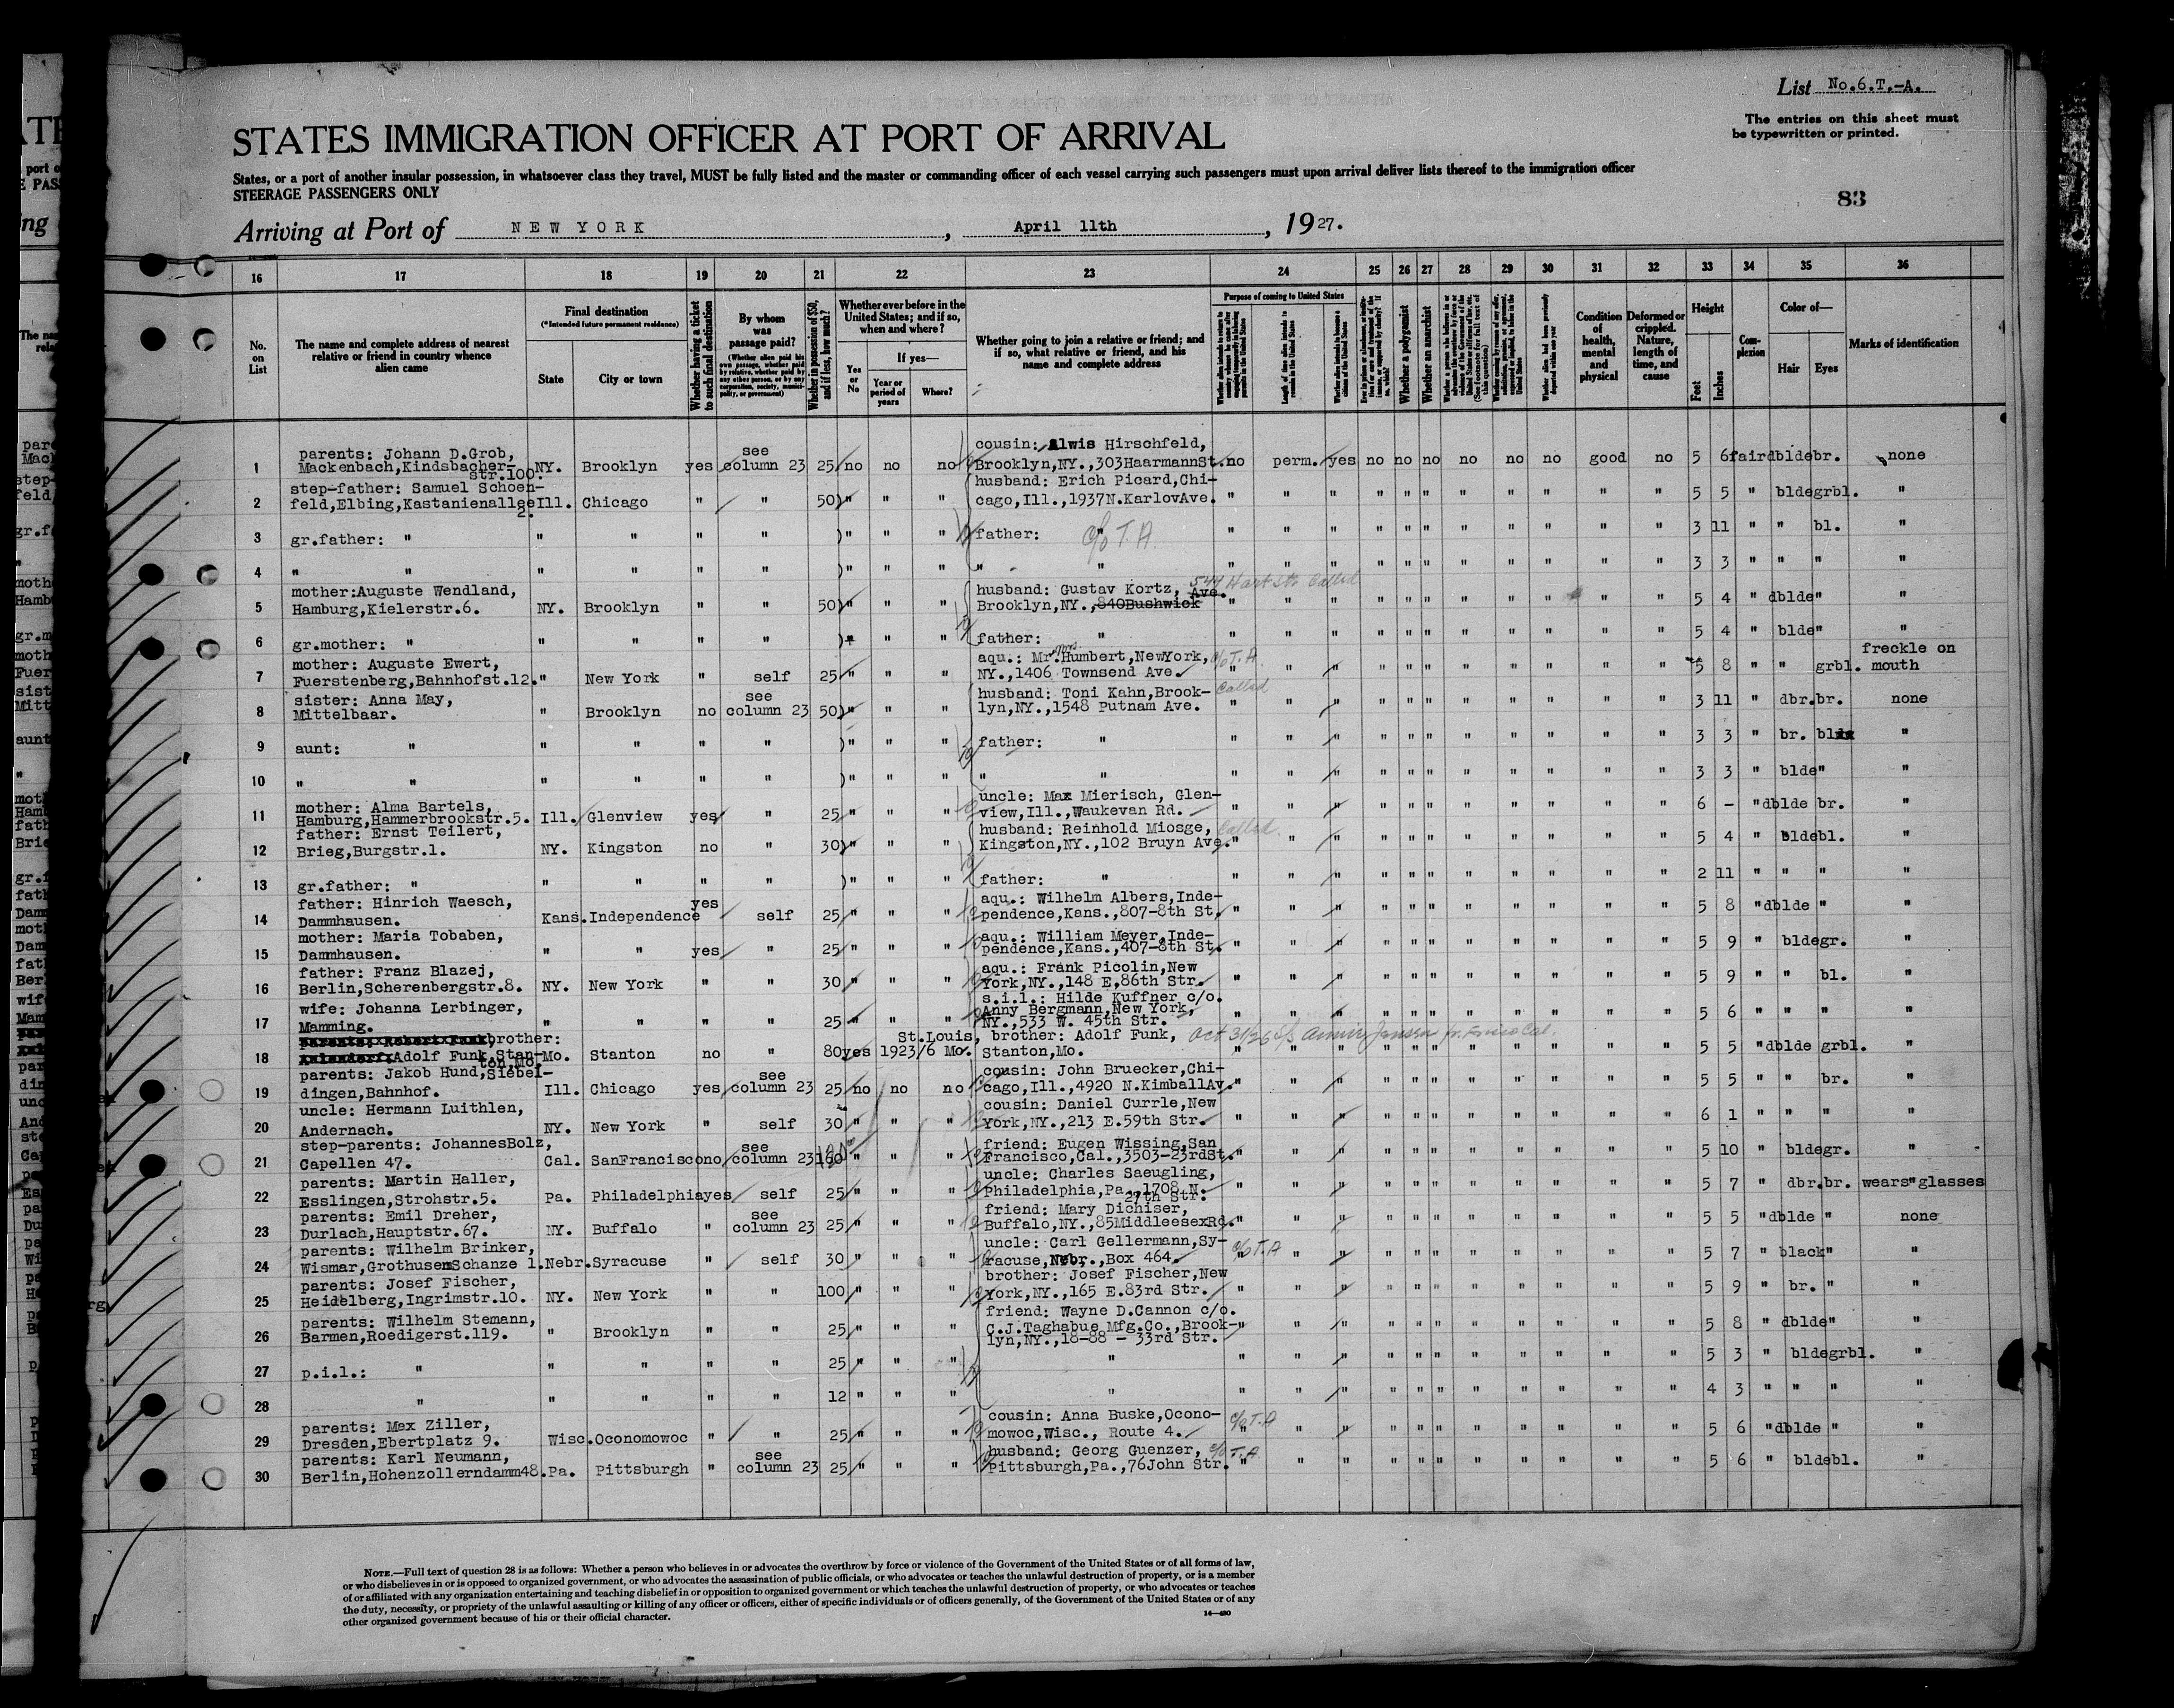 List No.6.T.-A.
The entries on this sheet must
be typewritten or printed.
STATES IMMIGRATION OFFICER AT PORT OF ARRIVAL
States, or a port of another insular possession, in whatsoever class they travel, MUST be fully listed and the master or commanding officer of each vessel carrying such passengers must upon arrival deliver lists thereof to the immigration officer
STEERAGE PASSENGERS ONLY
83
Arriving at Port of NEW YORK, April 11th, 1927.
16 17 18 19 20 21 22 23 24 25 26 27 28 29 30 31 32 33 34 35 36
No. on List
The name and complete address of nearest relative or friend in country whence alien came
Final destination
(*Intended future permanent residence)
State
City or town
Whether having a ticket to such final destination
By whom was passage paid?
(Whether alien paid his own passage, whether paid by relative, whether paid by any other person, or by any corporation, society, municipality, or government)
Whether in possession of $50, and if less, how much?
Whether ever before in the United States; and if so, when and where?
Yes or No
If yes—
Year or period of years
Where?
Whether going to join a relative or friend; and if so, what relative or friend, and his name and complete address
Purpose of coming to United States
Length of time alien intends to remain in the United States
Whether alien intends to become a citizen of the United States
Whether a polygamist
Whether an anarchist
Condition of health, mental and physical
Deformed or crippled. Nature, length of time, and cause
Height
Feet
Inches
Complexion
Color of—
Hair
Eyes
Marks of identification
1 parents: Johann D.Grob, Mackenbach,Kindsbacher-str.100. NY. Brooklyn yes see column 23 25 no no no cousin: Alwis Hirschfeld, Brooklyn,NY.,303HaarmannSt. no perm. yes no no no no no no good no 5 6 fair dblde br. none
2 step-father: Samuel Schoenfeld,Elbing,Kastanienallee 2. Ill. Chicago " " 50 " " " husband: Erich Picard,Chicago,Ill.,1937N.KarlovAve. " " " " " " " " " " " 5 5 " blde grbl. "
3 gr.father: " " " " " ) " " " father: " c/o T.A. " " " " " " " " " " " 3 11 " " bl. "
4 " " " " " " ) " " " " " " " " " " " " " " " " 3 3 " " " "
5 mother:Auguste Wendland, Hamburg,Kielerstr.6. NY. Brooklyn " " 50 " " " husband: Gustav Kortz, Brooklyn,NY.,840Bushwick Ave. 544 Hart Str Called " " " " " " " " " " " 5 4 " dblde " "
6 gr.mother: " " " " " ) " " " father: " " " " " " " " " " " " 5 4 " blde " "
7 mother: Auguste Ewert, Fuerstenberg,Bahnhofst.12. " New York " self 25 " " " aqu.: Mr. Mrs. Humbert,NewYork, NY.,1406 Townsend Ave. c/o T.A. " " " " " " " " " " " 5 8 " " grbl. freckle on mouth
8 sister: Anna May, Mittelbaar. " Brooklyn no see column 23 50 " " " husband: Toni Kahn,Brooklyn,NY.,1548 Putnam Ave. Called " " " " " " " " " " " 3 11 " dbr. br. none
9 aunt: " " " " " ) " " " father: " " " " " " " " " " " " 3 3 " br. bl "
10 " " " " " " ) " " " " " " " " " " " " " " " " 3 3 " blde " "
11 mother: Alma Bartels, Hamburg,Hammerbrookstr.5. Ill. Glenview yes " 25 " " " uncle: Max Mierisch, Glenview,Ill.,Waukevan Rd. " " " " " " " " " " " 6 - " dblde br. "
12 father: Ernst Teilert, Brieg,Burgstr.1. NY. Kingston no " 30 " " " husband: Reinhold Miosge, Kingston,NY.,102 Bruyn Ave. Called " " " " " " " " " " " 5 4 " blde bl. "
13 gr.father: " " " " " ) " " " father: " " " " " " " " " " " " 2 11 " " " "
14 father: Hinrich Waesch, Dammhausen. Kans. Independence yes self 25 " " " aqu.: Wilhelm Albers,Independence,Kans.,807-8th St. " " " " " " " " " " " 5 8 " dblde " "
15 mother: Maria Tobaben, Dammhausen. " " yes " 25 " " " aqu.: William Meyer,Independence,Kans.,407-8th St. " " " " " " " " " " " 5 9 " blde gr. "
16 father: Franz Blazej, Berlin,Scherenbergstr.8. NY. New York " " 30 " " " aqu.: Frank Picolin,New York,NY.,148 E.86th Str. " " " " " " " " " " " 5 9 " " bl. "
17 wife: Johanna Lerbinger, Mamming. " " " " 25 " " " s.i.l.: Hilde Kuffner c/o. Anny Bergmann,New York, NY.,533 W. 45th Str. " " " " " " " " " " " 5 6 " " " "
18 brother: Adolf Funk,Stanton,Mo. Mo. Stanton no " 80 yes 1923/6 St.Louis, Mo. brother: Adolf Funk, Stanton,Mo. Oct 31/26 " " " " " " " " " " " 5 5 " dblde grbl. "
19 parents: Jakob Hund,Siebeldingen,Bahnhof. Ill. Chicago yes see column 23 25 no no no cousin: John Bruecker,Chicago,Ill.,4920 N.KimballAv. " " " " " " " " " " " 5 5 " " br. "
20 uncle: Hermann Luithlen, Andernach. NY. New York " self 30 " " " cousin: Daniel Currle,New York,NY.,213 E.59th Str. " " " " " " " " " " " 6 1 " " " "
21 step-parents: JohannesBolz, Capellen 47. Cal. SanFrancisco no see column 23 " " " friend: Eugen Wissing,San Francisco,Cal.,3503-23rdSt. " " " " " " " " " " " 5 10 " blde gr. "
22 parents: Martin Haller, Esslingen,Strohstr.5. Pa. Philadelphia yes self 25 " " " uncle: Charles Saeugling, Philadelphia,Pa.,1708 N. 27th Str. " " " " " " " " " " " 5 7 " dbr. br. wears glasses
23 parents: Emil Dreher, Durlach,Hauptstr.67. NY. Buffalo " see column 23 25 " " " friend: Mary Dichiser, Buffalo,NY.,85MiddlesexRd. " " " " " " " " " " " 5 5 " dblde " none
24 parents: Wilhelm Brinker, Wismar,GrothusenSchanze 1. Nebr. Syracuse " self 30 " " " uncle: Carl Gellermann,Syracuse,Nebr.,Box 464. c/o T.A " " " " " " " " " " " 5 7 " black " "
25 parents: Josef Fischer, Heidelberg,Ingrimstr.10. NY. New York " " 100 " " " brother: Josef Fischer,New York,NY.,165 E.83rd Str. " " " " " " " " " " " 5 9 " br. " "
26 parents: Wilhelm Stemann, Barmen,Roedigerst.119. " Brooklyn " " 25 " " " friend: Wayne D.Cannon c/o. C.J.Taghabue Mfg.Co.,Brooklyn,NY.,18-88 - 33rd Str. " " " " " " " " " " " 5 8 " dblde " "
27 p.i.l.: " " " " " 25 " " " " " " " " " " " " " " " 5 3 " blde grbl. "
28 " " " " " 12 " " " " " " " " " " " " " " " 4 3 " " " "
29 parents: Max Ziller, Dresden,Ebertplatz 9. Wisc. Oconomowoc " " 25 " " " cousin: Anna Buske,Oconomowoc,Wisc., Route 4. c/o T.A " " " " " " " " " " " 5 6 " dblde " "
30 parents: Karl Neumann, Berlin,Hohenzollerndamm48. Pa. Pittsburgh " see column 23 25 " " " husband: Georg Guenzer, Pittsburgh,Pa.,76John Str. c/o T.A " " " " " " " " " " " 5 6 " blde bl. "
NOTE.—Full text of question 28 is as follows: Whether a person who believes in or advocates the overthrow by force or violence of the Government of the United States or of all forms of law,
or who disbelieves in or is opposed to organized government, or who advocates the assassination of public officials, or who advocates or teaches the unlawful destruction of property, or is a member
of or affiliated with any organization entertaining and teaching disbelief in or opposition to organized government or which teaches the unlawful destruction of property, or who advocates or teaches
the duty, necessity, or propriety of the unlawful assaulting or killing of any officer or officers, either of specific individuals or of officers generally, of the Government of the United States or of any
other organized government because of his or their official character.